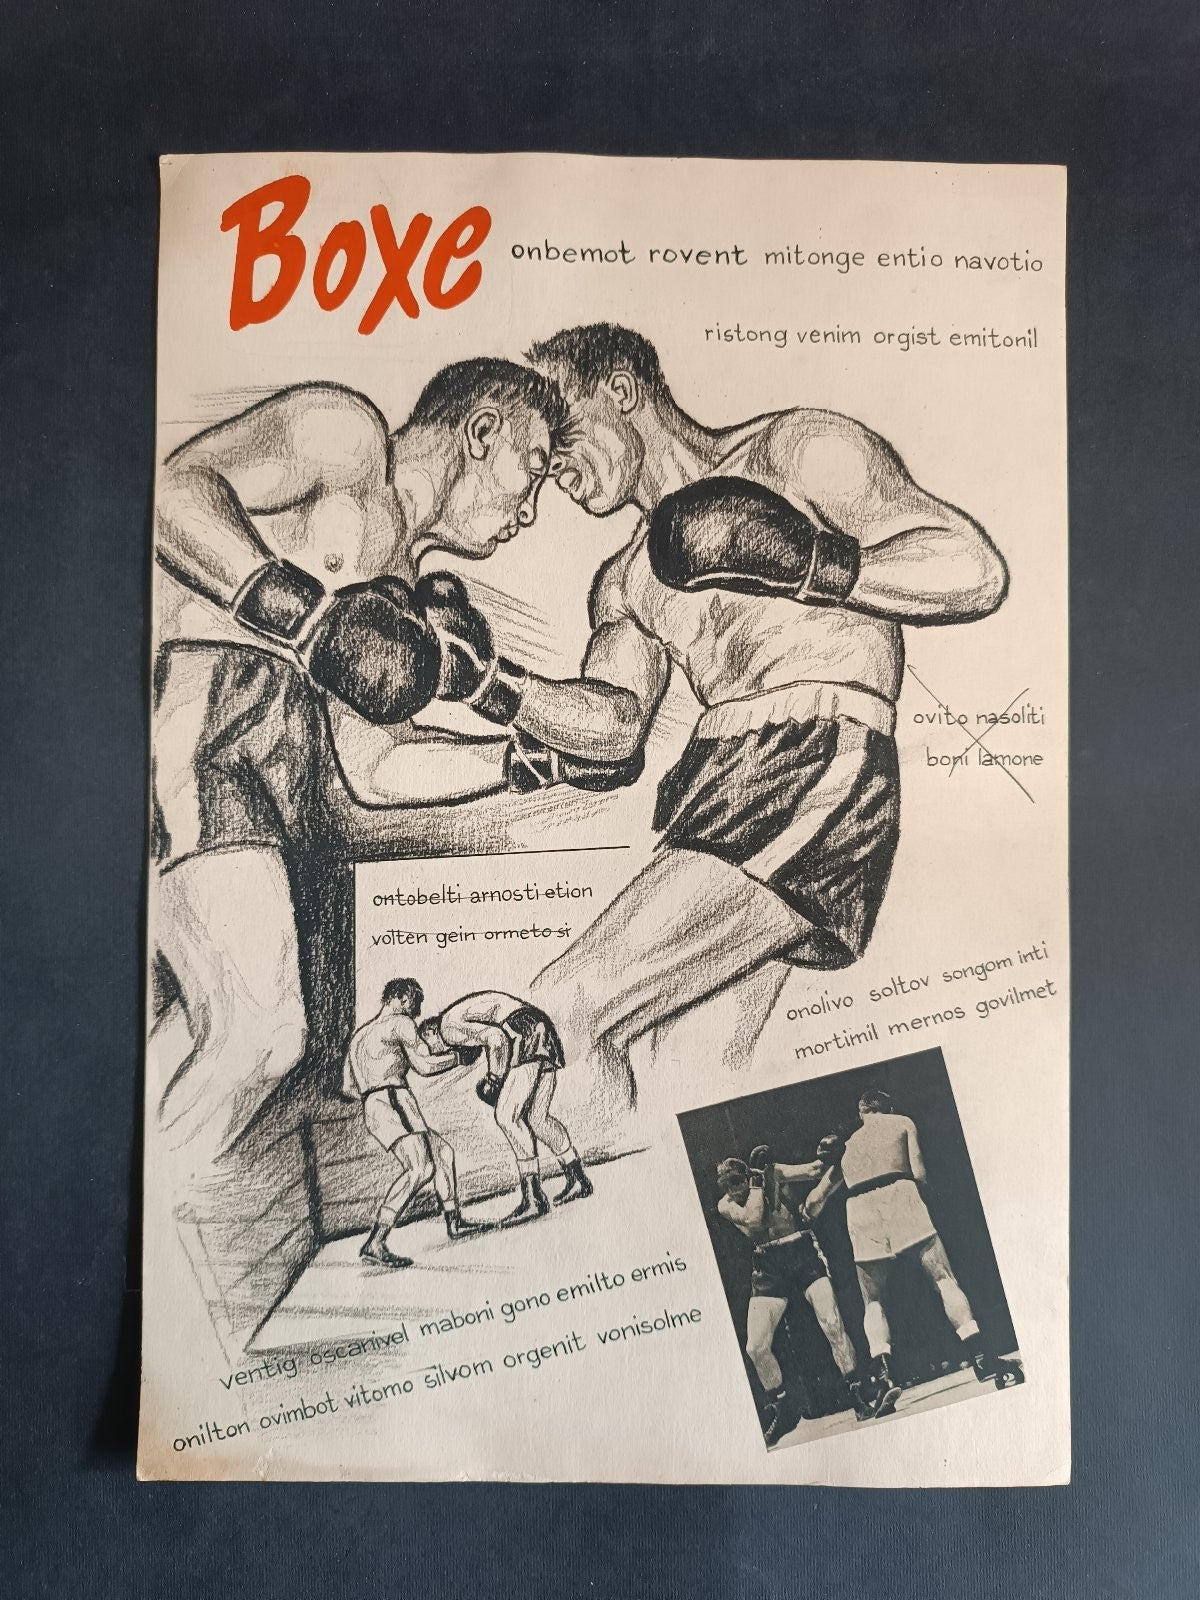 Boxe
onbemot rovent mitonge entio navotio
ristong venim orgist emitonil
ovito nasoliti
boni lamone
ontobelti arnosti etion
volten gein ormeto si
onolivo soltov songom inti
mortimil mernos govilmet
ventig oscanivel maboni gono emilto ermis
onilton ovimbot vitomo silvom orgenit vonisolme
2